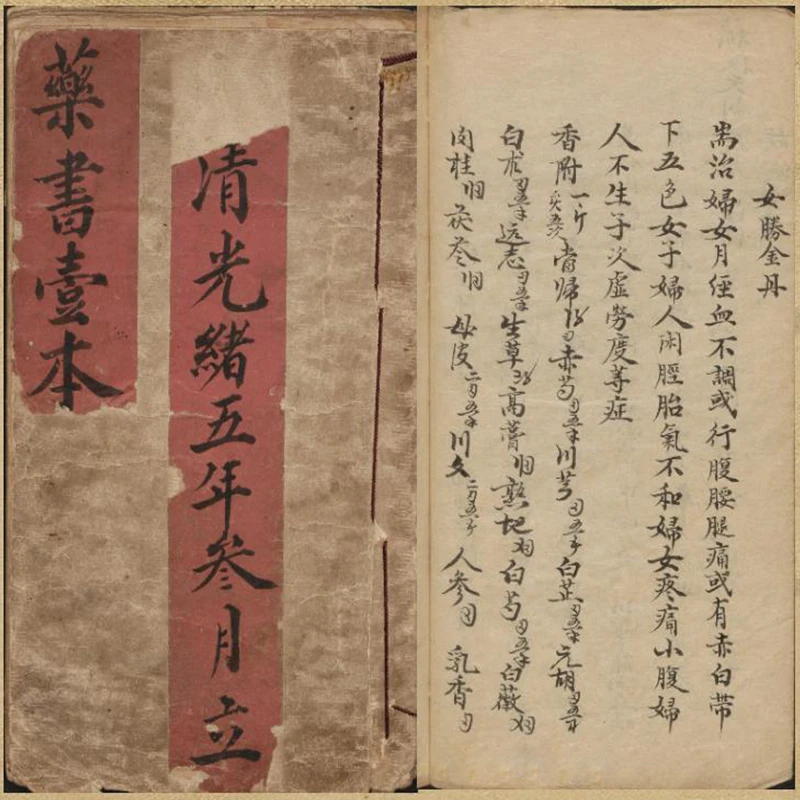 藥書壹本
清光緒五年叁月立
女勝金丹
耑治婦女月經血不調或行腹腰腿痛或有赤白帶
下五色女子婦人閑脛胎氣不和婦女疼痛小腹婦
人不生子次虛勞度等症
香附一斤 當歸 赤芍 川芎 白芷 元胡
白朮 远志 生草 高 熟地 白芍 白薇
肉桂 茯苓 皮 川文 人參 乳香